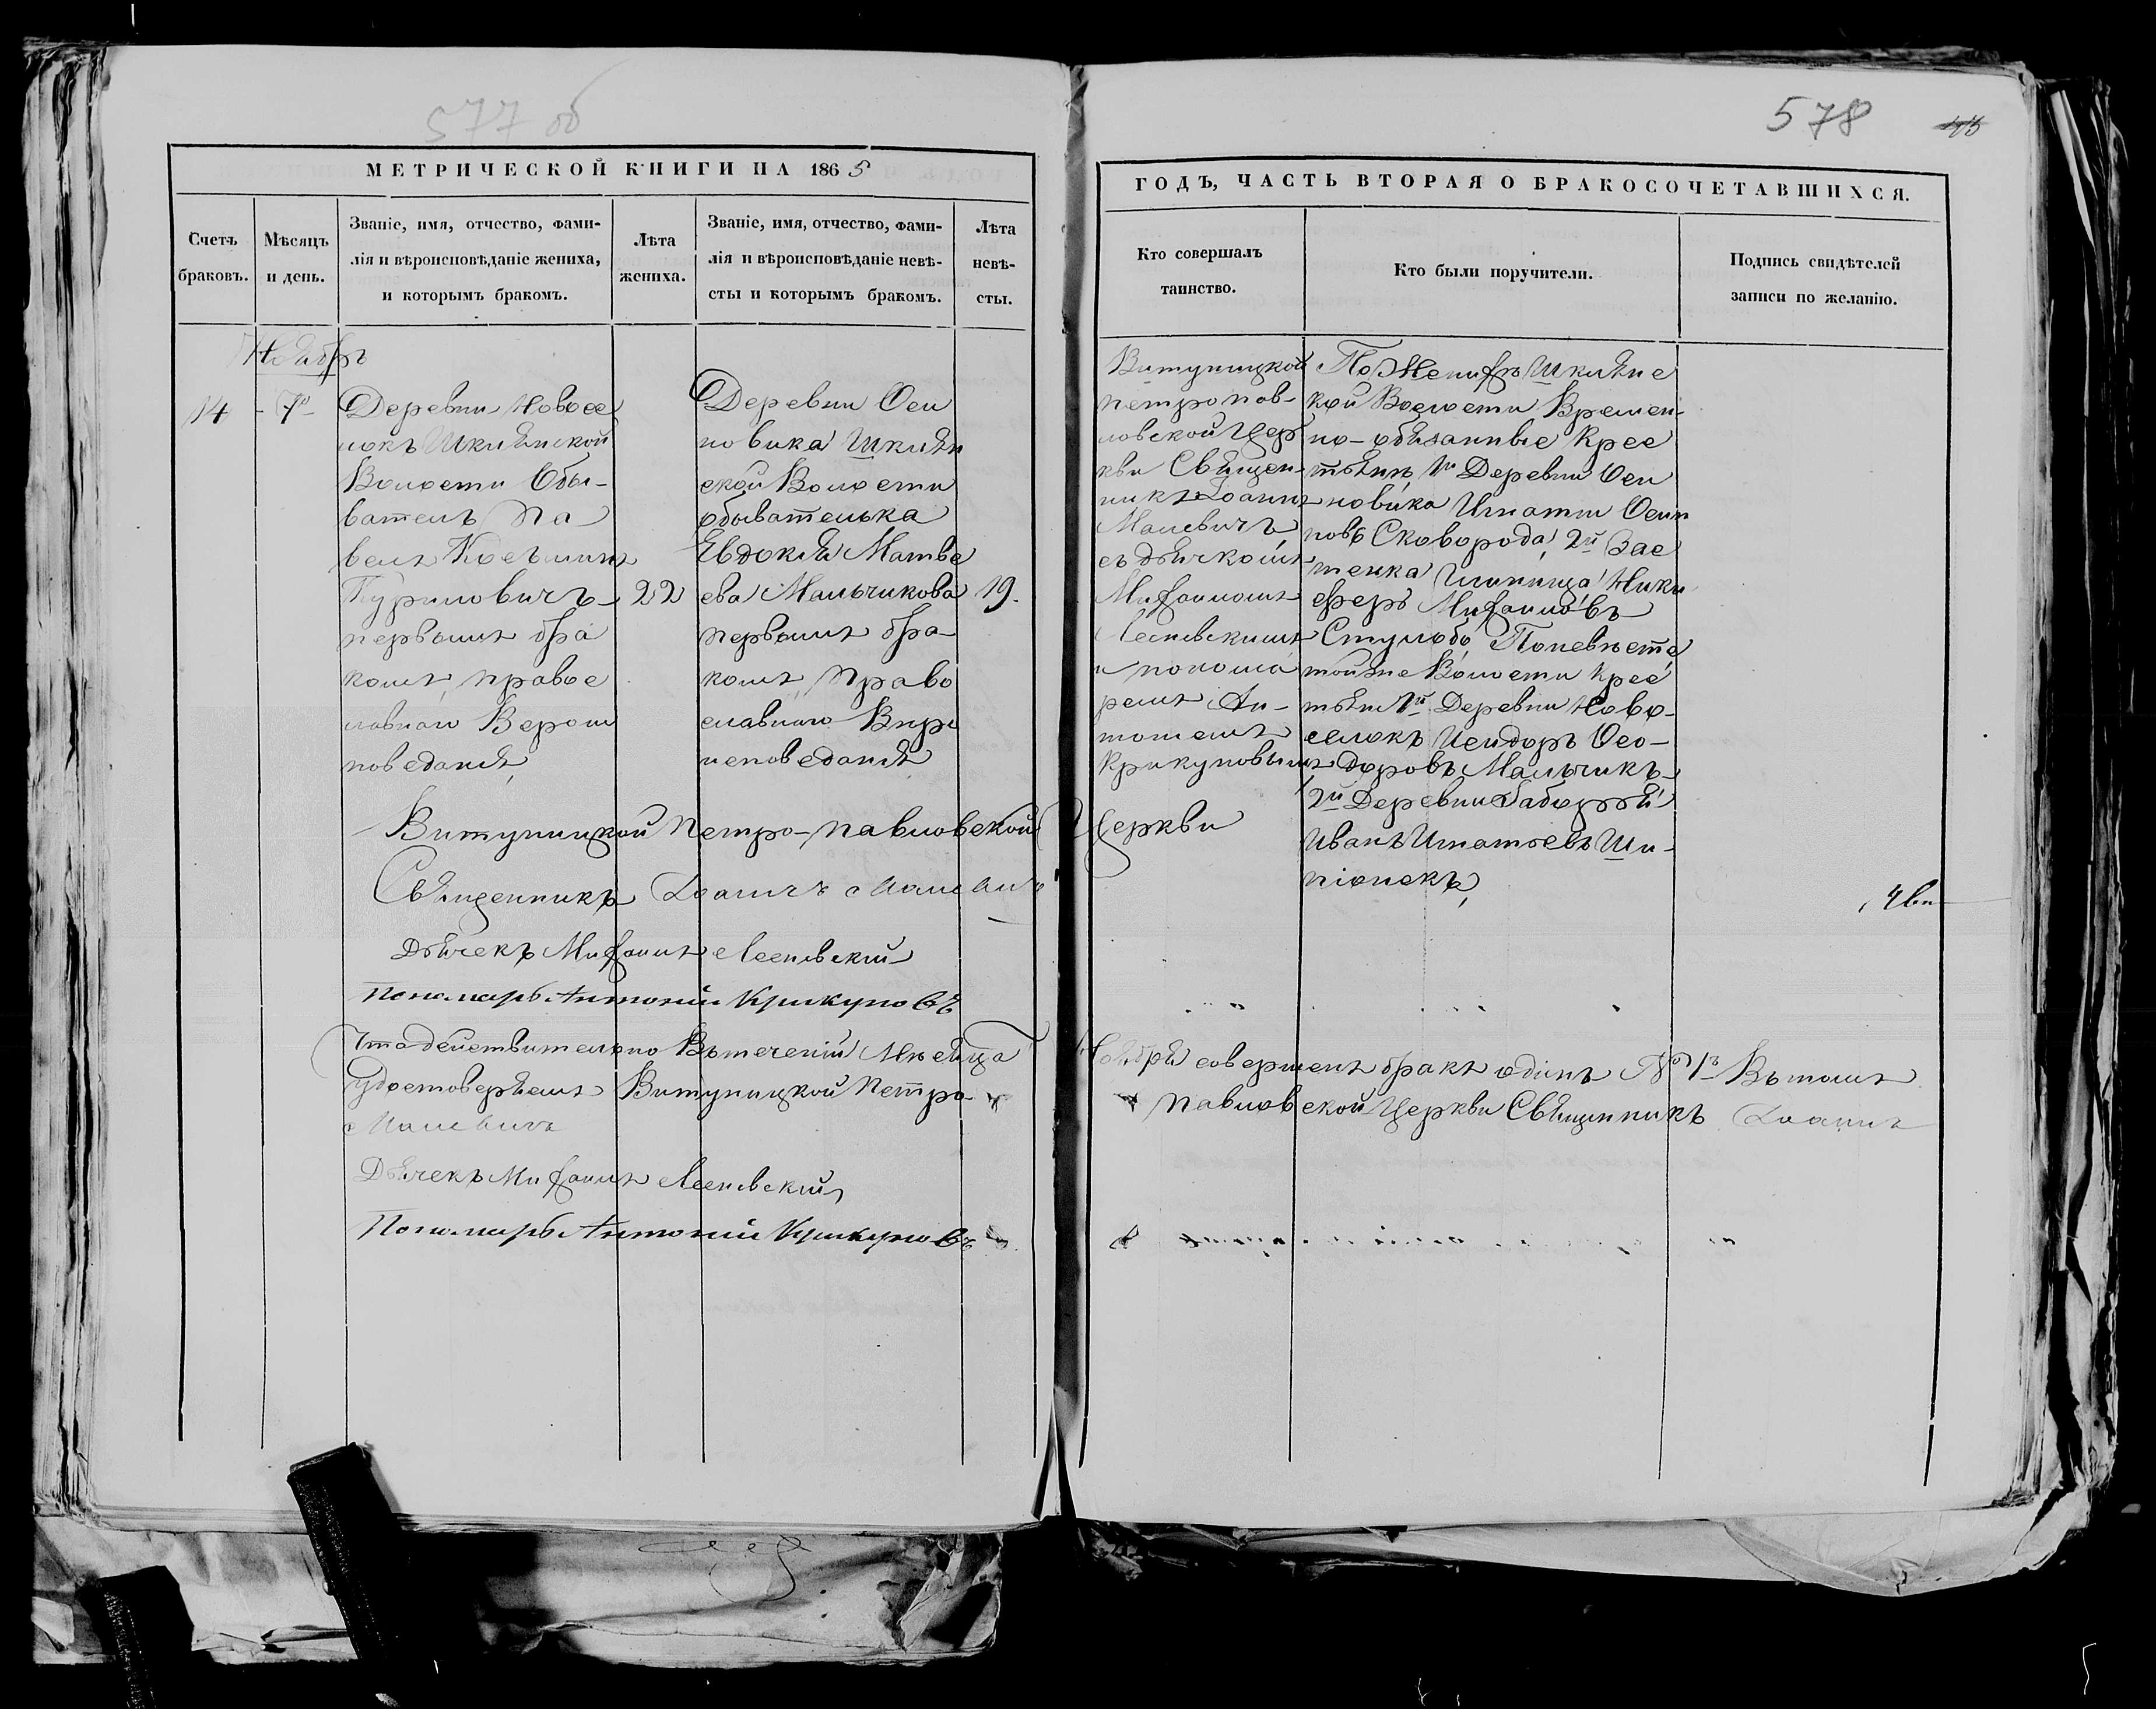 577 об
МЕТРИЧЕСКОЙ КНИГИ НА 1865
Счетъ браковъ.
Мѣсяцъ и день.
Званіе, имя, отчество, фами-
лія и вѣроисповѣданіе жениха,
и которымъ бракомъ.
Лѣта жениха.
Званіе, имя, отчество, фами-
лія и вѣроисповѣданіе невѣ-
сты и которымъ бракомъ.
Лѣта невѣ-
сты.
Ноябрь
14
7
Деревни Новосе
локъ Шклянской
Волости Обы-
ватель Па
велъ Косьминъ
Куриловичъ
первымъ бра
комъ, правос
лавнаго Вероис
поведанія,
22
Деревни Оси
новика Шклян
ской Волости
обывателька
Евдокія Матве
ева Мальчикова
первымъ бра-
комъ, право
славнаго Виро
исповеданія
19.
Витуницкой Петро-Павловской
Священникъ Іоаннъ Малевичъ
Дьячекъ Михаилъ Лесневский
Пономарь Антоній Крикуновъ
Что действительно Въ теченіи Мѣсяца
Удостоверяемъ Витуницкой Петро
Малевичъ
Дьячекъ Михаилъ Лесневский
Пономарь Антоній Крикуновъ
578
ГОДЪ, ЧАСТЬ ВТОРАЯ О БРАКОСОЧЕТАВШИХСЯ.
Кто совершалъ
таинство.
Кто были поручители.
Подпись свидѣтелей
записи по желанію.
Витуницкой
Петропав-
ловской Цер
кви Священ
никъ Іоаннъ
Малевичъ
съ дьячкомъ
Михаиломъ
Лесневскимъ
и понома
ремъ Ан-
тономъ
Крикуновымъ
По Женихѣ Шкляне
кой Волости Времен-
но-обязанные Крес
тьяне, 1й Деревни Оси
новика Игнатій Осип
повъ Сковорода, 2й Зас
тенка Никифоръ Михаиловъ
Стулобо, По невѣсте
той же Волости Крес
тьяне 1й Деревни Ново-
селокъ Исидоръ Ѳео-
доровъ Мальчикъ
2й Деревни
Иванъ Игнатьевъ Ши-
піонекъ,
Церкви
Ноября совершенъ бракъ одинъ № 1ъ Въ томъ
Павловской Церкви Священникъ Іоаннъ